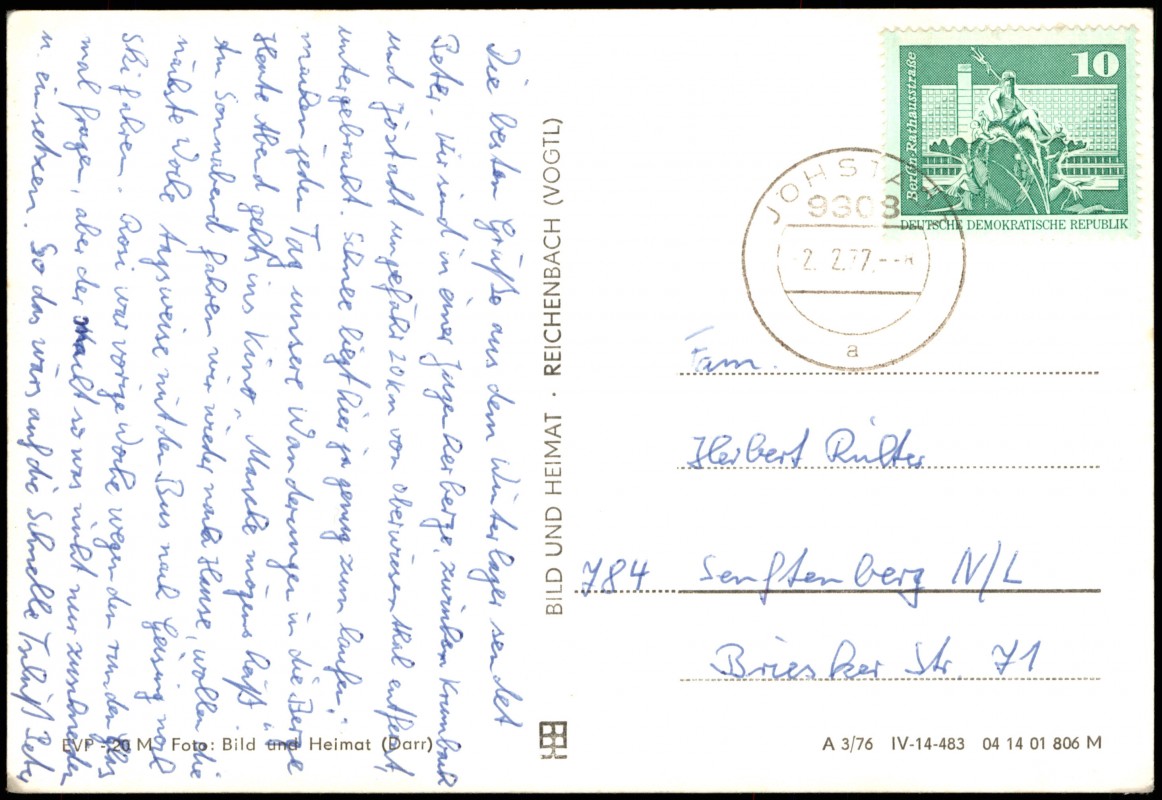 Die besten Grüße aus dem Winterlager sendet
Peter. Wir sind in einer Jugendherberge, zwischen Krumbach
und Jöstadt ungefähr 20 km von Oberwiesenthal entfernt,
untergebracht. Schnee liegt hier ja genug zum laufen,
machen jeden Tag unsere Wanderungen in die Berge
Heute Abend gehts ins Kino "Manche mögens heiß".
Am Sonnabend fahren wir wieder nach Hause, wollen die
nächste Woche tagsweise mit den Bus nach Geising noch
Ski fahren. Rosi war vorige Woche wegen den runden Glas
mal fragen, aber der macht so was nicht nur zuschneiden
u. einsetzen. So das wärs auf die Schnelle Tschüß Peter
BILD UND HEIMAT · REICHENBACH (VOGTL)
EVP -20 M Foto: Bild und Heimat (Darr)
10
Berlin-Rathausstraße
DEUTSCHE DEMOKRATISCHE REPUBLIK
JÖHSTADT
9308
-2. 2.77.--
a
Fam.
Herbert
784 Senftenberg N/L
Briesker Str. 71
A 3/76 IV-14-483 04 14 01 806 M